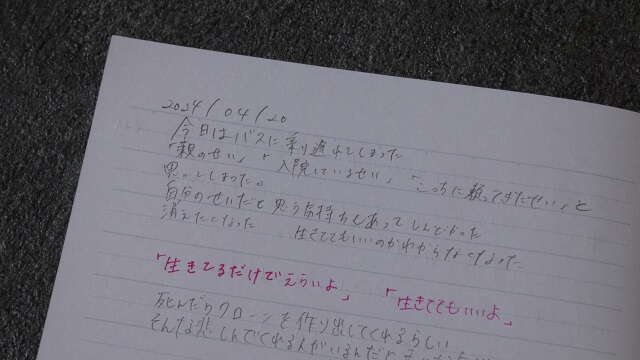 2024/04/20
今日はバスに乗り遅れてしまった
「親のせい」「入院しているせい」「こっちに頼ってきたせい」と
思ってしまった。
自分のせいだと思う気持ちもあってしんどかった
消えたくなった 生きててもいいのかわからなくなった
「生きてるだけでえらいよ」 「生きててもいいよ」
死んだらクローンを作り出してくれるらしい
そんな悲しんでくれる人がいるんだと